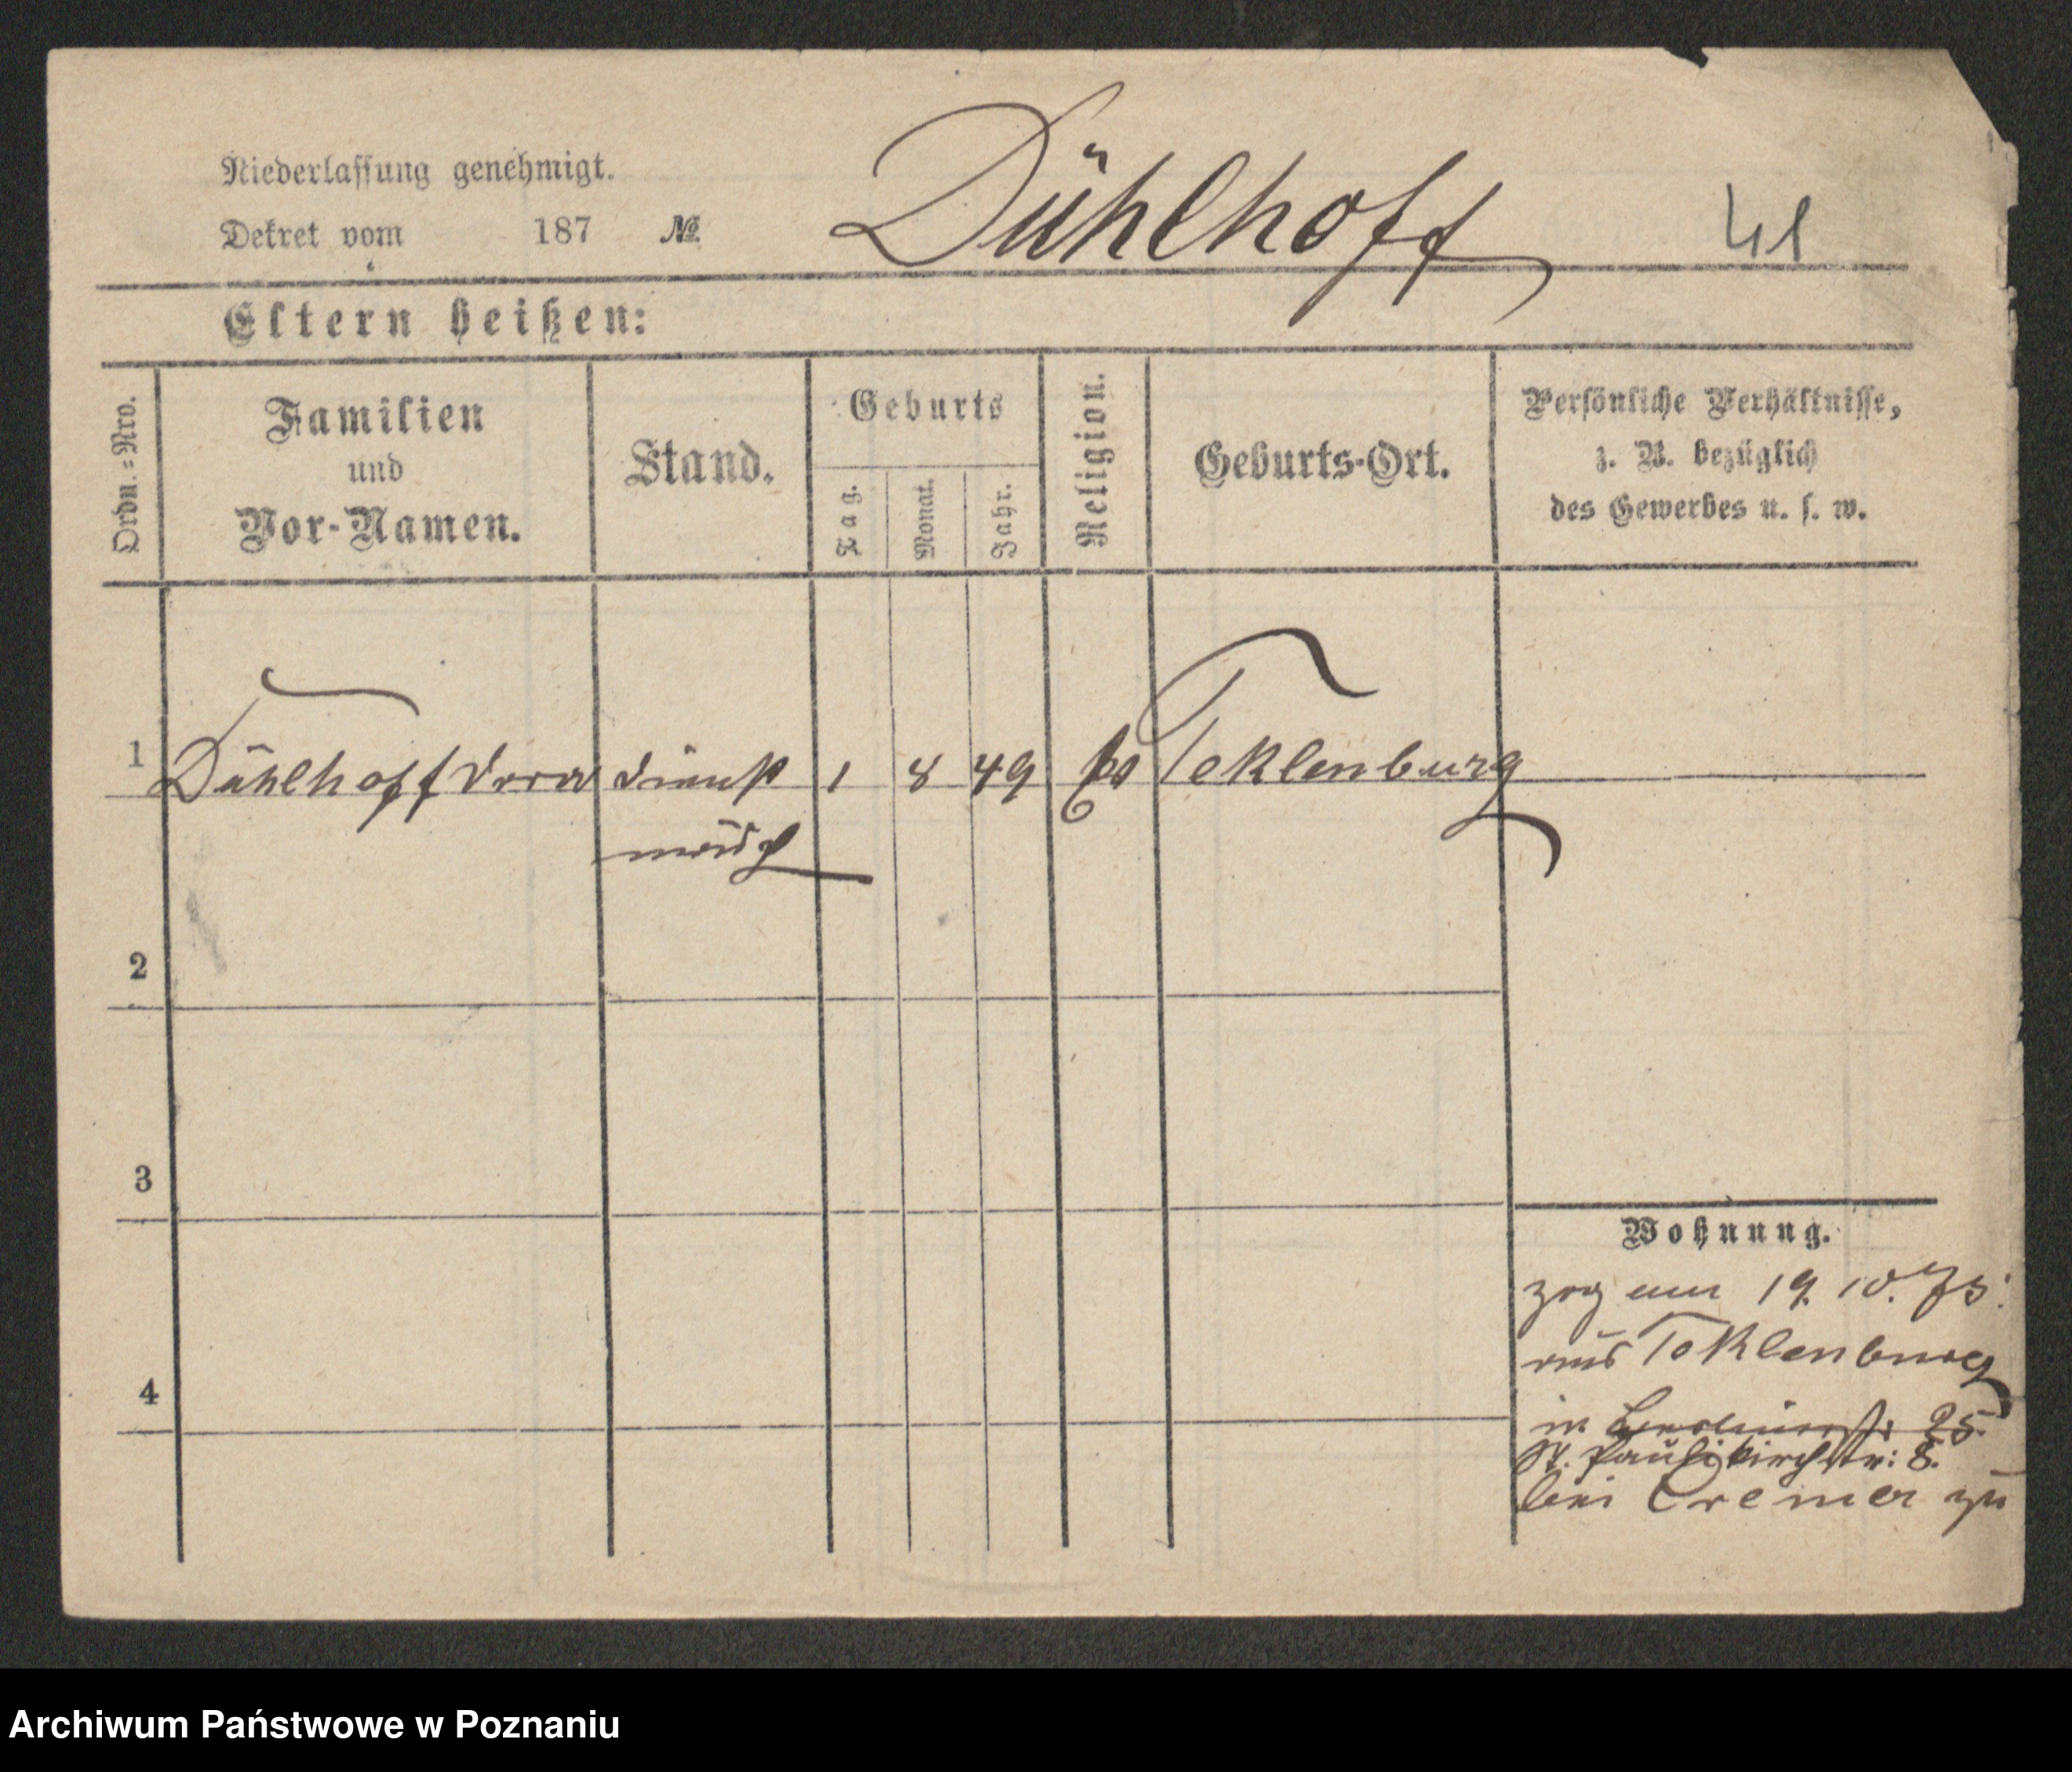 Niederlassung genehmigt.
Dekret vom 187 №
Dühlhoff
41
Eltern heißen:
Ordn.=Nro.
Familien
und
Vor-Namen.
Stand.
Geburts
Tag.
Monat.
Jahr.
Religion.
Geburts-Ort.
Persönliche Verhältnisse,
z. B. bezüglich
des Gewerbes u. s. w.
1 Dühlhoff Dora Dienst 1 8 49 Teklenburg
mädch
2
3
4
Wohnung.
zog am 19. 10. 75.
aus Teklenburg
in Berlinerstr 25.
St. Paulikirchstr: 8.
bei Cremer zu
Archiwum Państwowe w Poznaniu